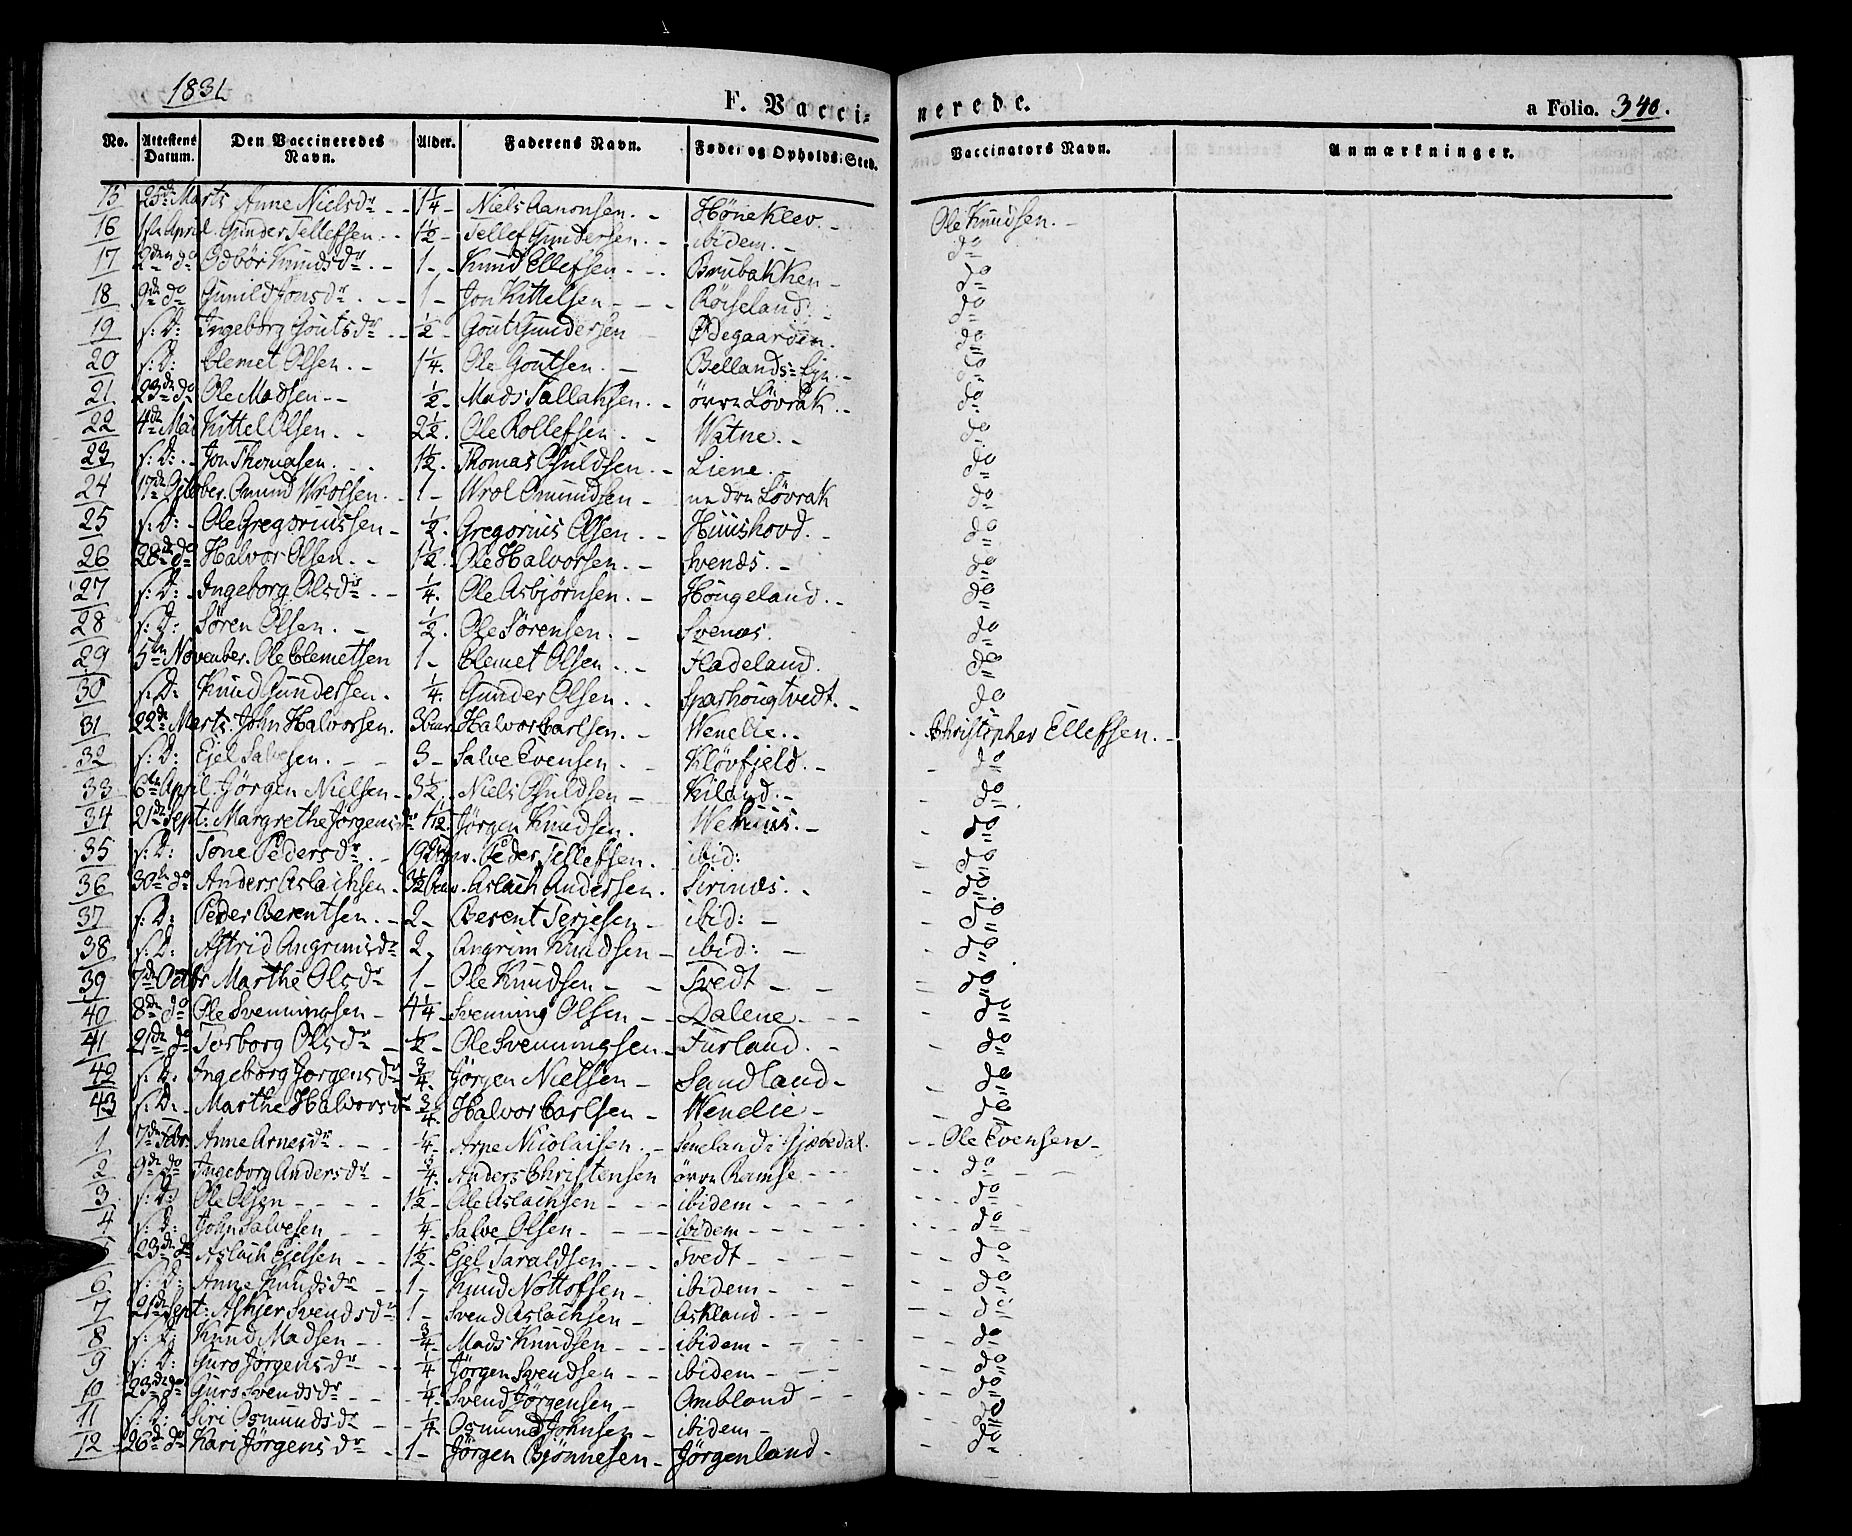 1831
F. Vacci-nerede. a Folio. 340.
No. Attestens Datum. Den Vaccineredes Navn. Alder. Faderens Navn. Føde- og Opholds-Sted. Vaccinators Navn. Anmærkninger.
15 25de Marts Anne Nielsdr - 1¼ - Niels Aanonsen. - Høneklev. - Ole Knudsen. -
16 1ste April. Gunder Tellefsen. - 1½ - Tellef Gundersen. - ibidem. - do
17 2den do Odbör Knudsdr. - 1 - Knud Ellefsen - Brubakken - do
18 9de do Gunild Jonsdr - 1 - Jon Kittelsen - Röiseland. - do
19 s: D: Ingeborg Goutsdr - ½ - Gout Gundersen Ødegaarden. do
20 s: D: Clemet Olsen. - 1¼. Ole Goutsen. - Bellands-Ejn. - do
21 23de do Ole Madsen - ½ - Mads Tallaksen. - övre Lövrak. - do
22 4de Mai Kittel Olsen. - 2½. Ole Rollefsen. - Watne. - do
23 s: D: - Jon Thomasen. - 1½. Thomas Osuldsen. - Liene. - do
24 17de October. Omund Wrolsen. - 1 - Wrol Omundsen - nedre Lövrak do
25 s: D: - Ole Gregoriussen - ½. Gregorius Olsen. - Huushovd. - do
26 28de do Halvor Olsen. - 1½. Ole Halvorsen. - Svends. - do
27 s: D: - Ingeborg Olsdr. - ¼. Ole Asbjørnsen. - Höugeland. - do
28 s: D: Sören Olsen. - ½. Ole Sörensen. - Svenæs. do
29 5te November. Ole Clemetsen 1 - Clemet Olsen. - Fladeland. do
30 s: D: Knud Gundersen. ¼. Gunder Olsen. - Sparhougtvedt. - do
31 22de Marts. John Halvorsen. Halvor Carlsen. - Wenelie. - Christopher Ellefsen. -
32 s: D: Ejel Salvesen. - 3 - Salve Evensen. - Klövfjeld. - do
33 6te April. Jörgen Nielsen - 3½. Niels Osuldsen - Kiland. - do
34 21de Sept: Margrethe Jörgensdr Jörgen Knudsen. Wehuus. - do
35 s: D: Tone Pedersdr. - Peder Tellefsen. ibid: do
36 30te do Anders Aslachsen. Aslach Andersen. Sirinæs. - do
37 s: D: Peder Berentsen. - 2 - Berent Terjesen - ibid: - do
38 s: D: Astrid Angrimsdr 2 - Angrim Knudsen - ibid: - do
39 7de Octbr Marthe Olsdr 1 - Ole Knudsen - Tvedt - do
40 8de do Ole Svenningsen - 4¼ - Svenning Olsen - Dalene - do
41 21de do Torborg Olsdr - ½ - Ole Svenningsen - Furland. - do
42 s: D: Ingeborg Jörgensdr ¾. Jörgen Nielsen - Sandland - do
43 s: D: - Marthe Halvorsdr ¾. Halvor Carlsen - Wenelie - do
1 7de Febr. Anne Arnesdr. - ¼ - Arne Nicolaisen. - Smeland i Gjøvedal. - Ole Evensen -
2 9de do Ingeborg Andersdr - ¾. Anders Christensen övre Ramse - do
3 s: D: Ole Olsen - 1½ - Ole Aslachsen - ibidem - do
4 s: D: John Salvesen - ¼ - Salve Olsen - ibidem - do
5 23de do Aslach Ejelsen - 1½ - Ejel Taraldsen - Tvedt - do
6 s: D: Anne Knudsdr - 1 - Knud Nottofsen - ibidem - do
7 21de Sept: Askjer Svendsdr 1 - Svend Aslachsen - Askland - do
8 s: D: Knud Madsen - ¾ - Mads Knudsen - ibidem - do
9 s: D: Guro Jörgensdr - ¼ Jörgen Svendsen - ibidem - do
10 23de do Guro Svendsdr - ¼ - Svend Jörgensen - Ombland - do
11 s: D: Siri Osmundsdr - ¼ - Osmund Johnsen - ibidem - do
12 26de do Kari Jörgensdr - 1 - Jörgen Bjönnesen - Jörgenland - do